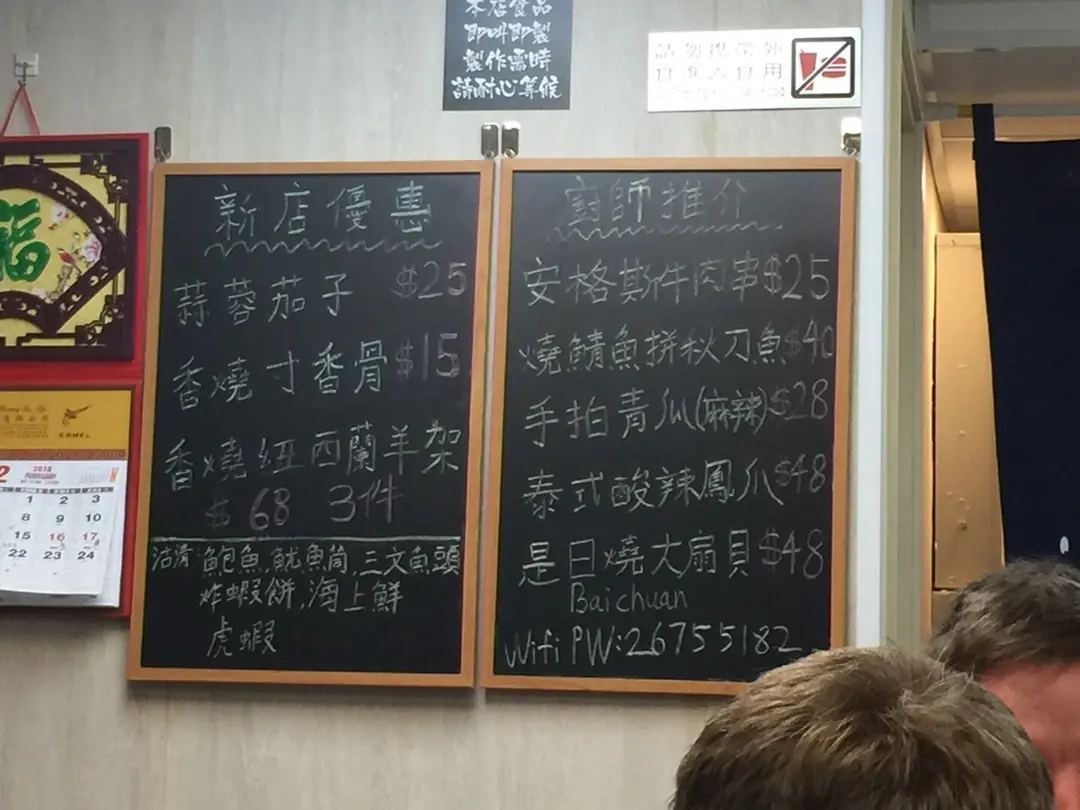 本店食品
即叫即製
製作需時
請耐心等候
請勿攜帶外
食進入食用
福
新店優惠
蒜蓉茄子 $25
香燒寸香骨 $15
香燒紐西蘭羊架
$68 3件
沽清 鮑魚,魷魚筒,三文魚頭
炸蝦餅,海上鮮
虎蝦
廚師推介
安格斯牛肉串$25
燒鯖魚拼秋刀魚$40
手拍青瓜(麻辣)$28
泰式酸辣鳳爪$48
是日燒大扇貝$48
Baichuan
Wifi PW:26755182
2 2018
FEBRUARY
1 2 3
8 9 10
15 16 17
22 23 24